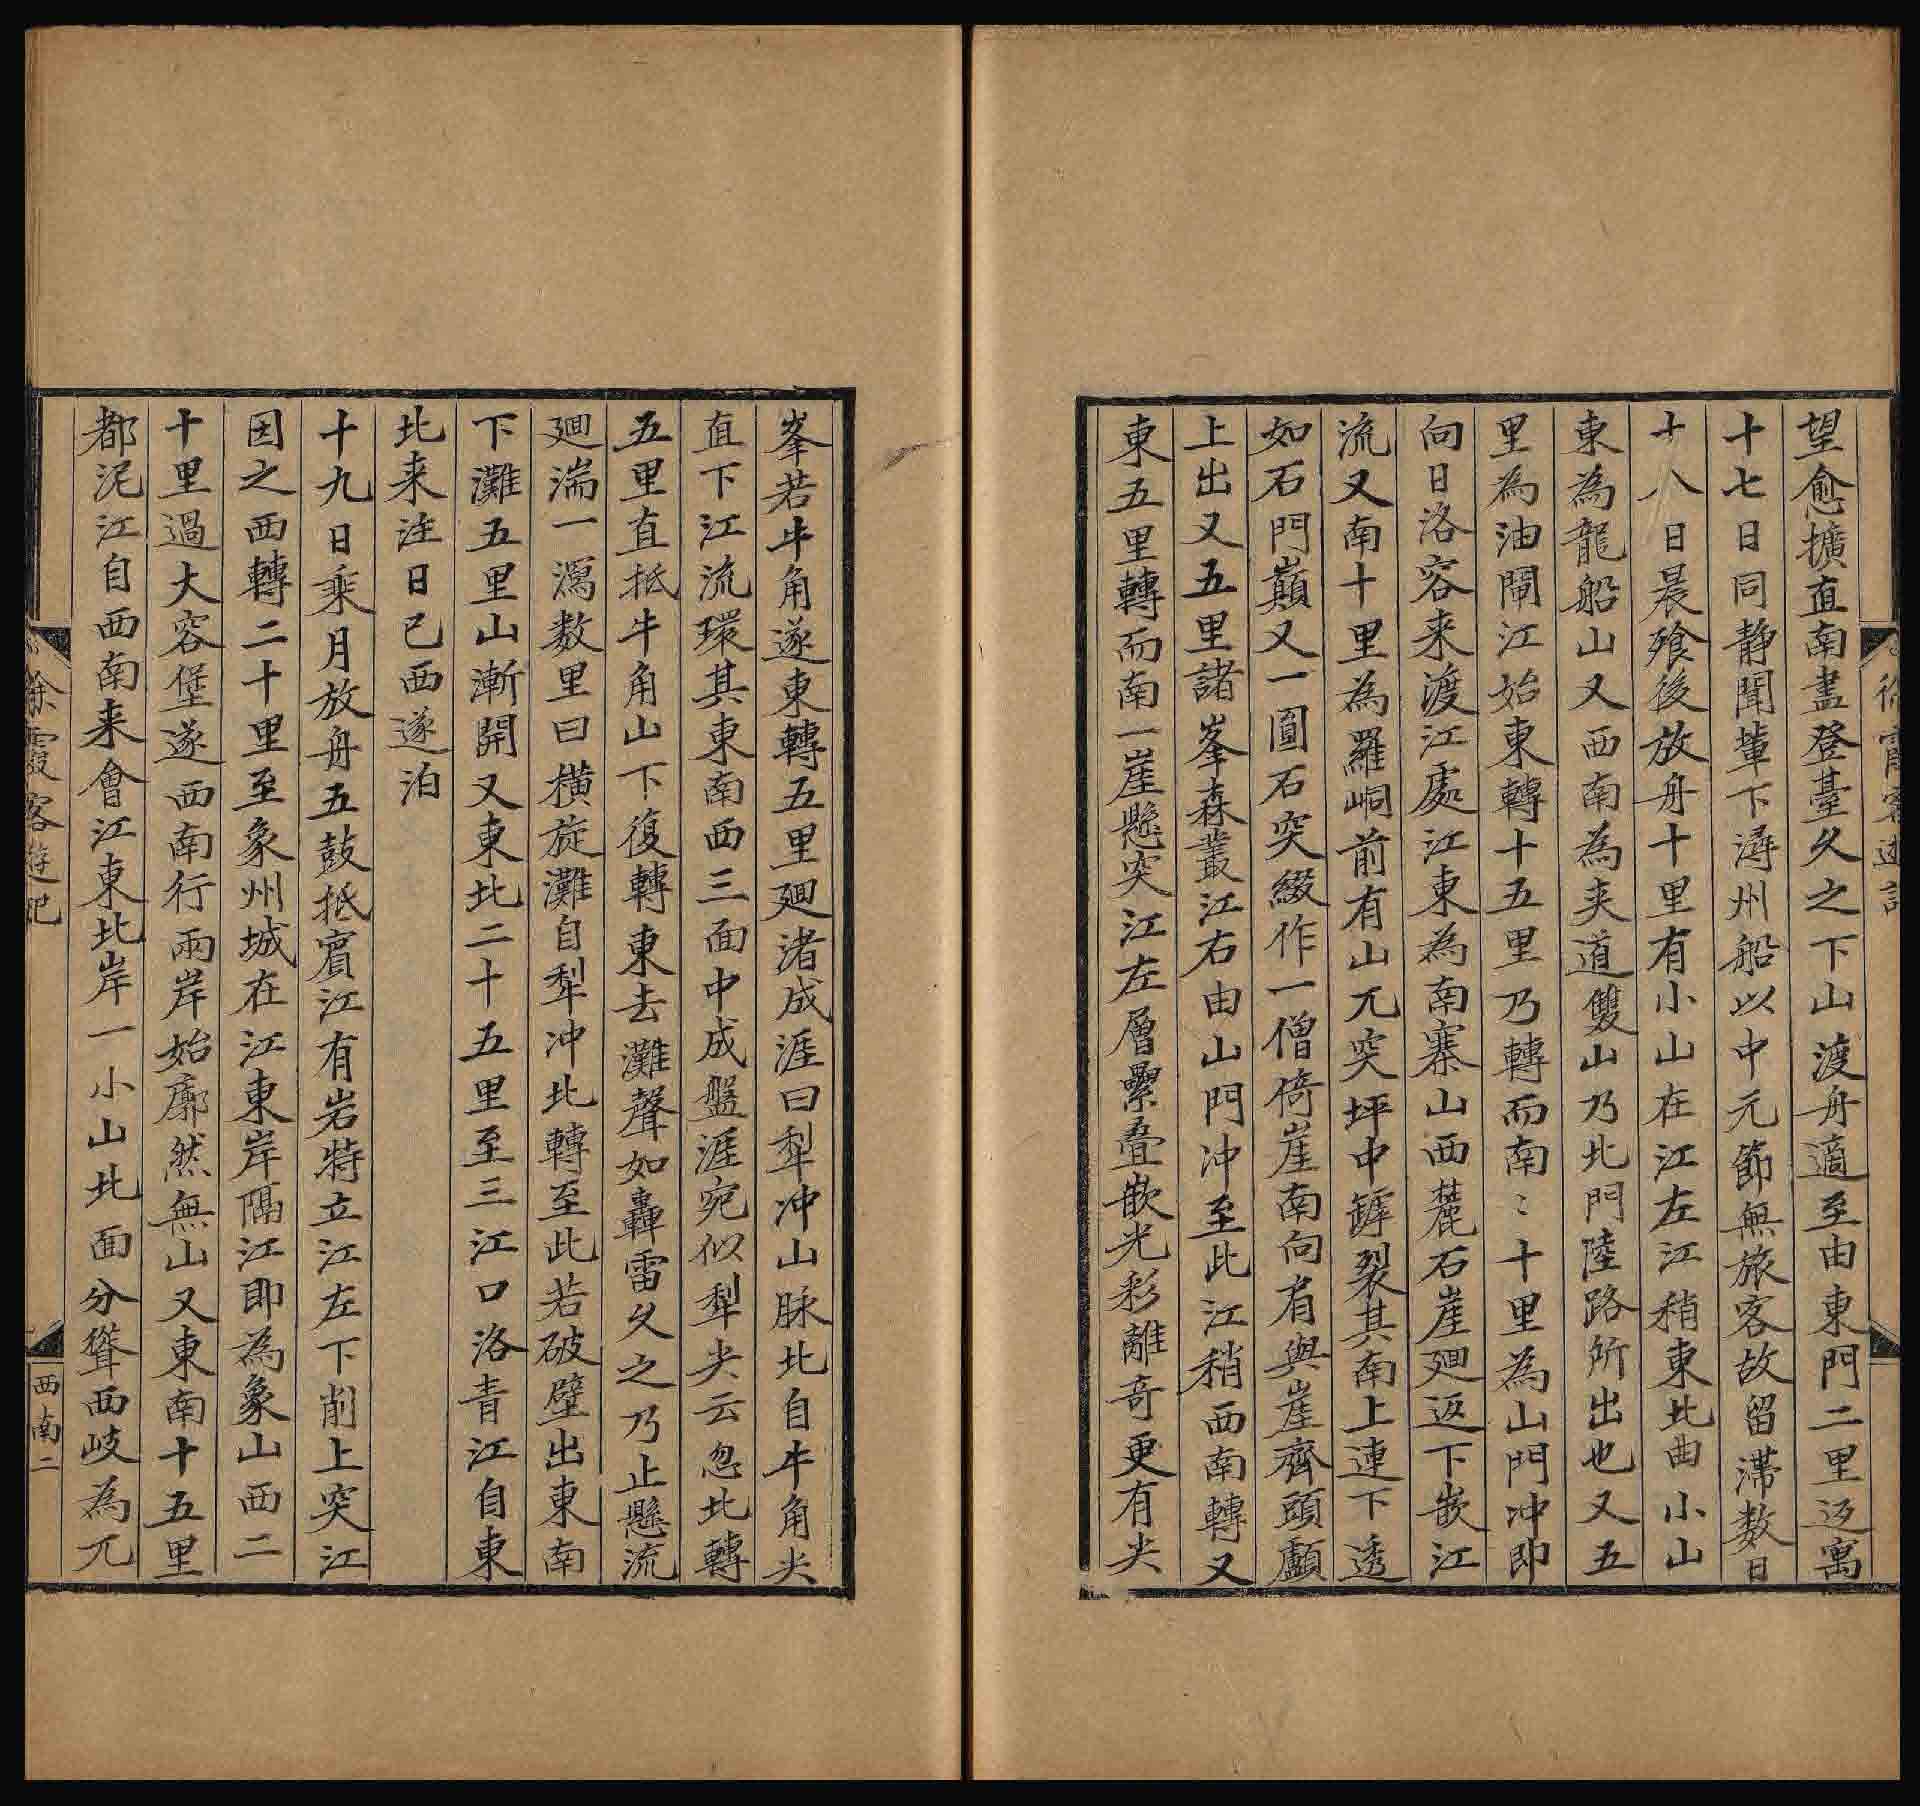 望愈擴直南盡登臺久之下山渡舟適至由東門二里返寓
十七日同静聞輩下潯州船以中元節無旅客故留滯数日
十八日晨飧後放舟十里有小山在江左江稍東北曲小山
東為龍船山又西南為夹道雙山乃北門陸路所出也又五
里為油閘江始東轉十五里乃轉而南〻十里為山門冲即
向日洛容来渡江處江東為南寨山西麓石崖廻返下嵌江
流又南十里為羅峒前有山兀突坪中罅裂其南上連下透
如石門巔又一圓石突綴作一僧倚崖南向肩與崖齊頭顱
上出又五里諸峯森叢江右由山門冲至此江稍西南轉又
東五里轉而南一崖懸突江左層纍叠嵌光彩離奇更有尖
峯若牛角遂東轉五里廻渚成涯曰犁冲山脉北自牛角尖
直下江流環其東南西三面中成盤涯宛似犁尖云忽北轉
五里直抵牛角山下復轉東去灘聲如轟雷久之乃止懸流
廻湍一瀉数里曰横旋灘自犁冲北轉至此若破壁出東南
下灘五里山漸開又東北二十五里至三江口洛青江自東
北来注日已西遂泊
十九日乘月放舟五鼓抵賓江有岩特立江左下削上突江
因之西轉二十里至象州城在江東岸隔江即為象山西二
十里過大容堡遂西南行兩岸始廓然無山又東南十五里
都泥江自西南来會江東北岸一小山北面分聳西岐為兀
徐霞客遊記
西南二